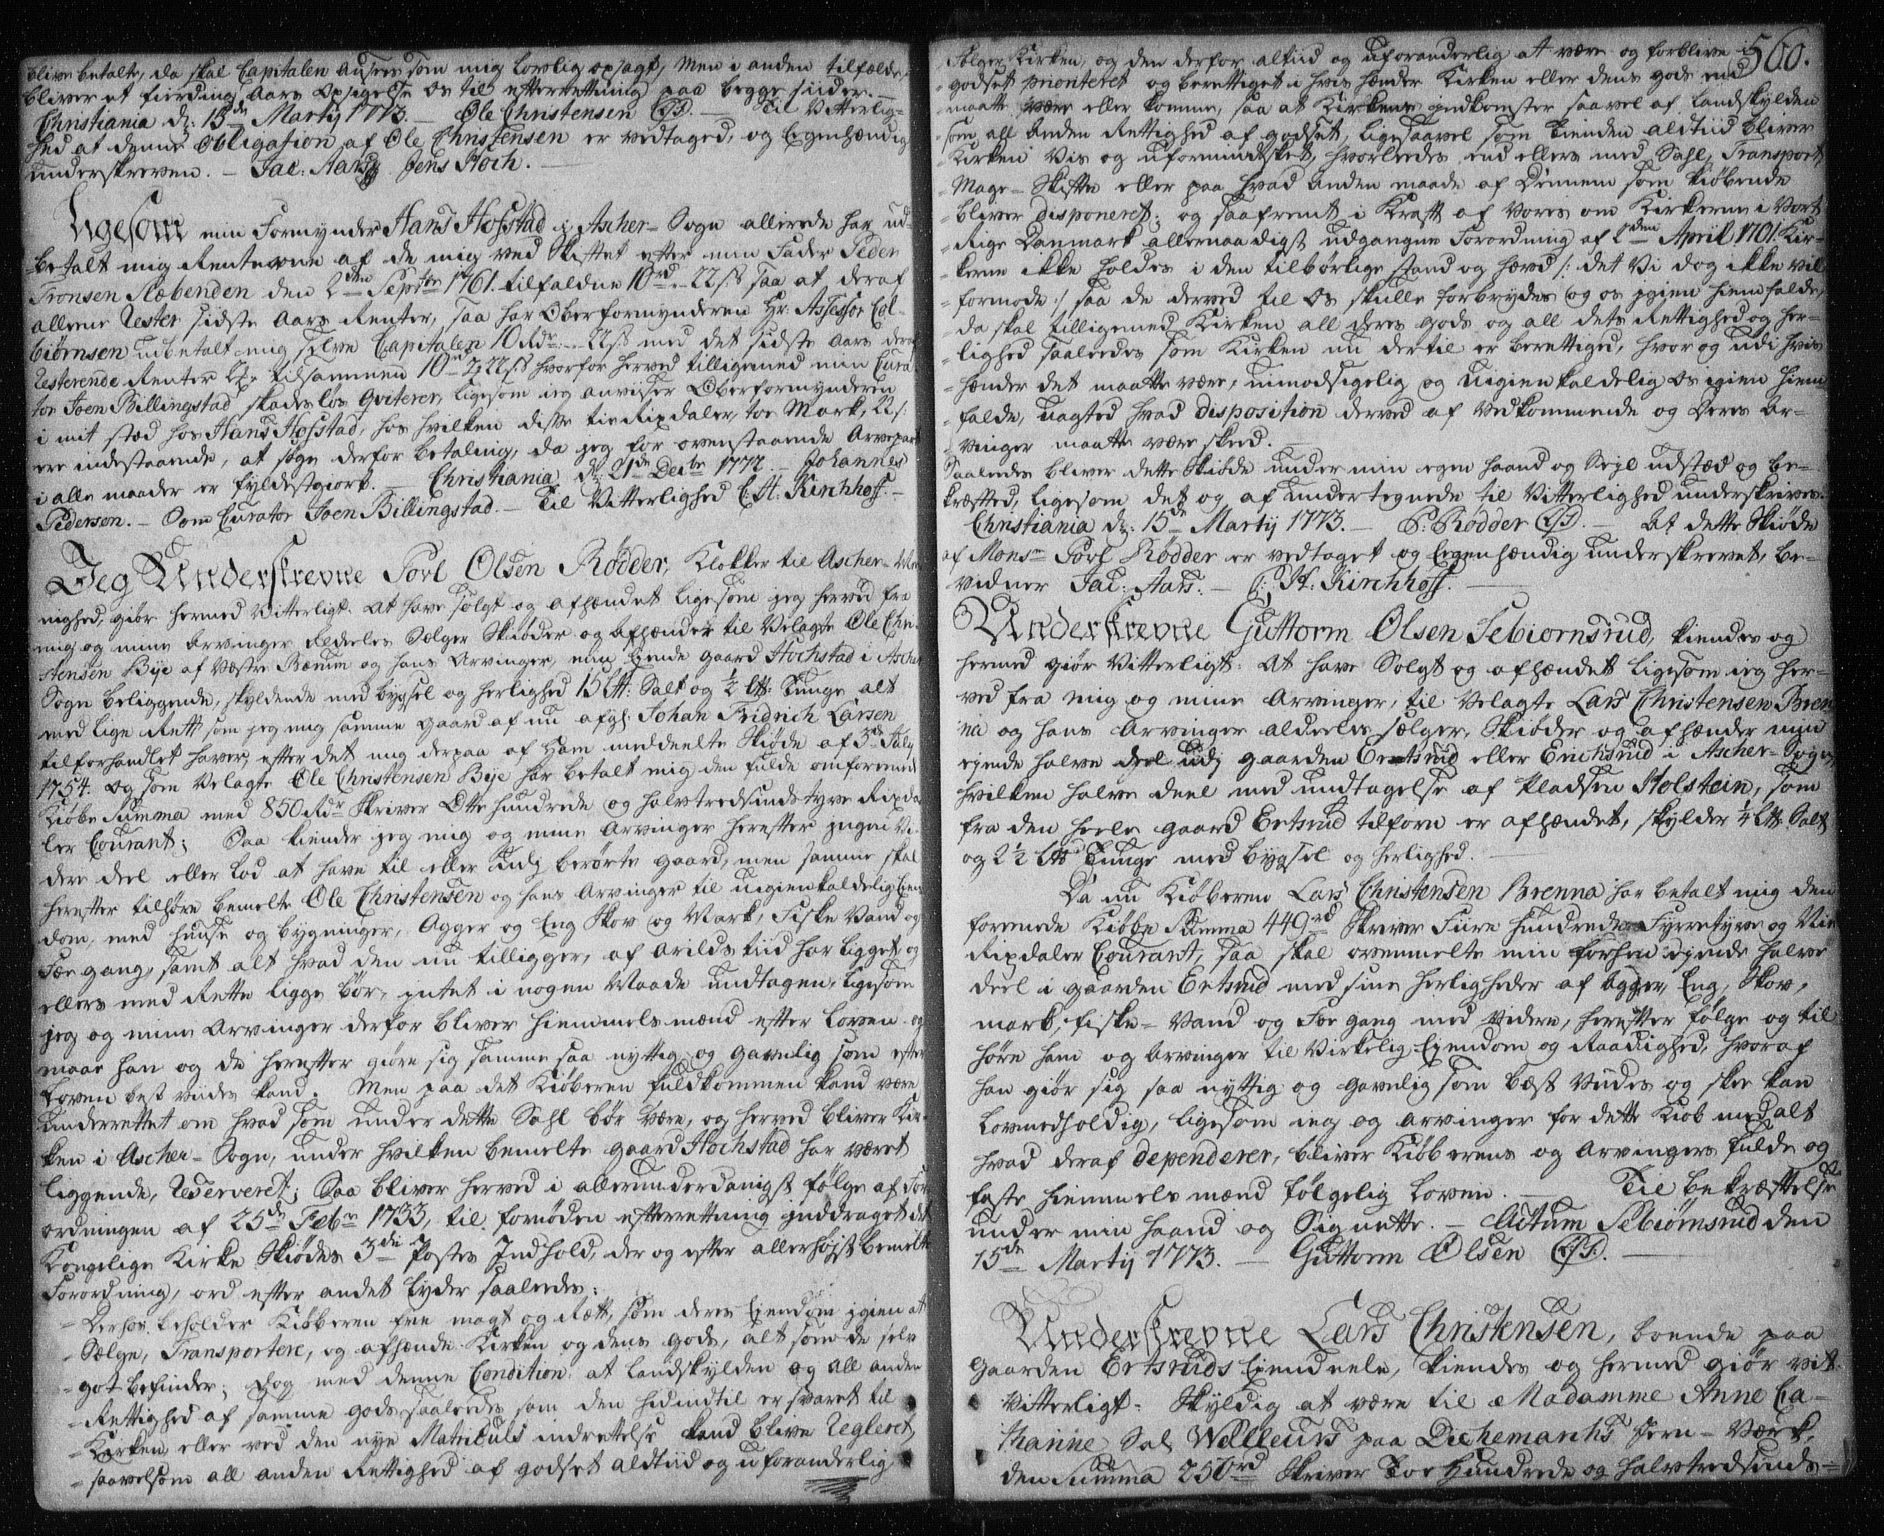 blive betalte, da skal Capitalen ansees som mig lovlig opsagt, Men i anden tilfælde,
bliver et fierding Aars Opsigelse os til efterretning paa begge siider. –
Christiania d: 13de Martij 1773. – Ole Christensen (LS). – Til Vitterlig-
hed at denne Obligation af Ole Christensen er vedtaged, og Egenhændig
underskreven. – Jac: Aars. Jens Høch. –
Ligesom min Formynder Hans Hofstad i Ascher-Sogn allerede har ud-
betalt mig Renterne af de mig ved Skiftet efter min Fader Peder
Tronsen Slæbenden den 2den Septbr 1761. tilfaldne 10 rd – 22 s: saa at deraf
alleene Rester sidste Aars Renter, saa har Oberformynderen Hr. Assessor Col-
biørnsen udbetalt mig selve Capitalen 10 Rdr – 22 s: med det sidste Aars deraf
Resterende Renter tilsammen 10 22 s hvorfor herved tilligemed min Cura-
tor Joen Billingstad skadesløs Qviterer, ligesom ieg anviiser Oberformynderen
i mit stæd hos Hans Hofstad, hos hvilken disse tie Rixdaler, toe Mark, 22 s:
ere indestaaende, at søge derfor betaling, da jeg for ovenstaaende Arvepart
i alle maader er fyldestgiort. – Christiania d: 21de Decbr 1772. – Johannes
Pedersen. – Som Curator Joen Billingstad. – Til Vitterlighed C: H. Kirchhoff. –
Jeg Underskrevne Povl Olsen Rødder, Klokker til Ascher-Me-
nighed, giør hermed Vitterligt: At have solgt og afhændet ligesom jeg herved fra
mig og mine Arvinger aldeeles Sælger Skiøder og Afhænder til Velagte Ole Chri-
stensen Bye af Vestre Bærum og hans Arvinger, min Eyende gaard Hochstad i Ascher
Sogn beliggende, skyldende med bygsel og herlighed 15 Lt: Salt og ½ Lt: Tunge alt
med lige Rett som jeg mig samme gaard af nu afg: Johan Fridrich Larsen
tilforhandlet haver, efter det mig derpaa af ham meddeelte Skiøde af 3de July
1754. Og som Velagte Ole Christensen Bye har betalt mig den fulde omforeenede
Kiøbe Summa med 850 Rdr skriver Otte hundrede og halvtredsindstyve Rixda-
ler Courant; Saa kiender jeg mig og mine Arvinger herefter ingen Vi-
dere deel eller Lod at have til eller udj berørte gaard, men samme skal
herefter tilhøre bemelte Ole Christensen og hans Arvinger til uigienkaldelig Eyen-
dom, med huuse og bygninger, Agger og Eng Skov og Mark, Fiske Vand og
Foe gang, samt alt hvad den nu tilligger, af Arilds tiid har ligget og
ellers med Rette ligge bør, intet i nogen Maade undtagen, ligesom
jeg og mine Arvinger derfor bliver Hiemmels mænd efter Loven og
maae han og de herefter giøre sig samme saa nyttig og gavnlig som efter
Loven best viides kand. Men paa det Kiøberen fuldkommen kand være
underrettet om hvad som under dette Sahl bør være, og herved bliver Kir-
ken i Ascher-Sogn, under hvilken bemelte gaard Hochstad har været
liggende, Reserveret; Saa bliver herved i allerunderdanigst følge af For-
ordningen af 25de Febr 1733, til fornøden efterrettning inddraget det
Kongelige Kirke Skiødes 3die Postes Indhold, der og efter allerhøjst bemelte
Forordning, ord efter andet lyder saaledes:
– Derhos beholder Kiøberen frie magt og Rett, som deres Eyendom igien at
– Sælge, Transportere, og afhænde Kirken og dens gods, alt som de selv
– got befinder; dog med denne Condition at Landskylden og all anden
– Rettighed af samme gods saaledes som den hidindtil er svaret til
– Kirken eller ved den nye Matriculs indrettelse kand blive Regleret
– saavelsom all anden Rettighed af godset altiid og uforanderlig
560.
følger Kirken, og den derfor altid og uforanderlig at være og forblive i
– godset prioriteret og berettiget i hvis hænder Kirken eller dens gods end
– maatte være eller komme, saa at Kirkens indkomster saavel af Landskylden
– som all Anden Rettighed af godset, ligesaavel som Tienden altiid bliver
– Kirken Vis og uformindsket, hvorledes end ellers med Sahl, Transport,
– Mage-Skifte eller paa hvad Anden maade af Dennem som kiøbende
– bliver disponeret; og saafremt i Kraft af Vores om Kirkerne i Vort
– Rige Danmark allernaadigst udgangne Forordning af 2den April 1701. Kir-
– kerne ikke holdes i den tilbørlige stand og hævd /: det Vi dog ikke vil
– formode :/ saa de derved til Os skulle forbrydes og os igien hiemfalde,
– da skal tilligemed Kirken all deres gods og all dets Rettighed og her-
– lighed saaledes som Kirken nu dertil er berettiged, hvor og udi hvis
– hænder det maatte være, uimodsigelig og uigienkaldelig Os igien hiem
– falde, uagted hvad disposition derved af Vedkommende og Deres Ar-
– vinger maatte være skeed. –
Saaledes bliver dette Skiøde under min egen haand og Seyl udstæd og be-
kræfted, ligesom det og af undertegnede til Vitterlighed underskrives.
Christiania d: 15de Martij 1773. – P: Rødder (LS). – At dette Skiøde
af Monsr Povl Rødder er vedtaget og Eegenhændig underskrevet, be-
vidner Jac: Aars. – C: H: Kirchhoff. –
Underskrevne Guttorm Olsen Sebiørnsrud, kiendes og
hermed giør Vitterligt: At have Solgt og afhændet ligesom ieg her-
ved fra mig og mine Arvinger, til Velagte Lars Christensen Bren-
na og hans Arvinger aldeeles sælger, Skiøder og afhænder min
eyende halve deel udj gaarden Ertsrud eller Erichsrud i Ascher-Sogn,
hvilken halve deel med undtagelse af Pladsen Holstein, som
fra den heele gaard Ertsrud tilforn er afhændet, skylder ¼ Lt Salt
og 2½ Lt Tunge med bygsel og herlighed. –
Da nu Kiøberen Lars Christensen Brenna har betalt mig den
foreenede Kiøbe Summa 449 rd skriver Fiire Hundrede Fyrretyve og Nie
Rixdaler Courant, saa skal ovenmelte min forhen eyende halve
deel i gaarden Ertsrud med sine herligheder af Agger, Eng, Skov,
mark, fiske-Vand og Foe gang med videre, herefter følge og til
høre ham og Arvinger til Virkelig Eyendom og Raadighed, hvoraf
han giør sig saa nyttig og gavnlig som best viides og skee kan
Lovmedholdig, ligesom ieg og Arvinger for dette Kiøb med alt
hvad deraf dependerer, bliver Kiøberens og Arvingers fulde og
faste Hiemmels mænd følgelig Loven. – Til Bekræftelse
under min haand og Signette. – Actum Sebiørnsrud den
15de Martij 1773. – Guttorm Olsen (LS). –
Underskrevne Lars Christensen, boende paa
Gaarden Ertsruds Eyendeele, kiendes og hermed giør vit-
Vitterligt: Skyldig at være til Madamme Anne Ca-
thrine Sal: Willeurs paa Dichemarchs Jern-Værk,
den Summa 250 rd skriver Toe Hundrede og halvtredsinds-